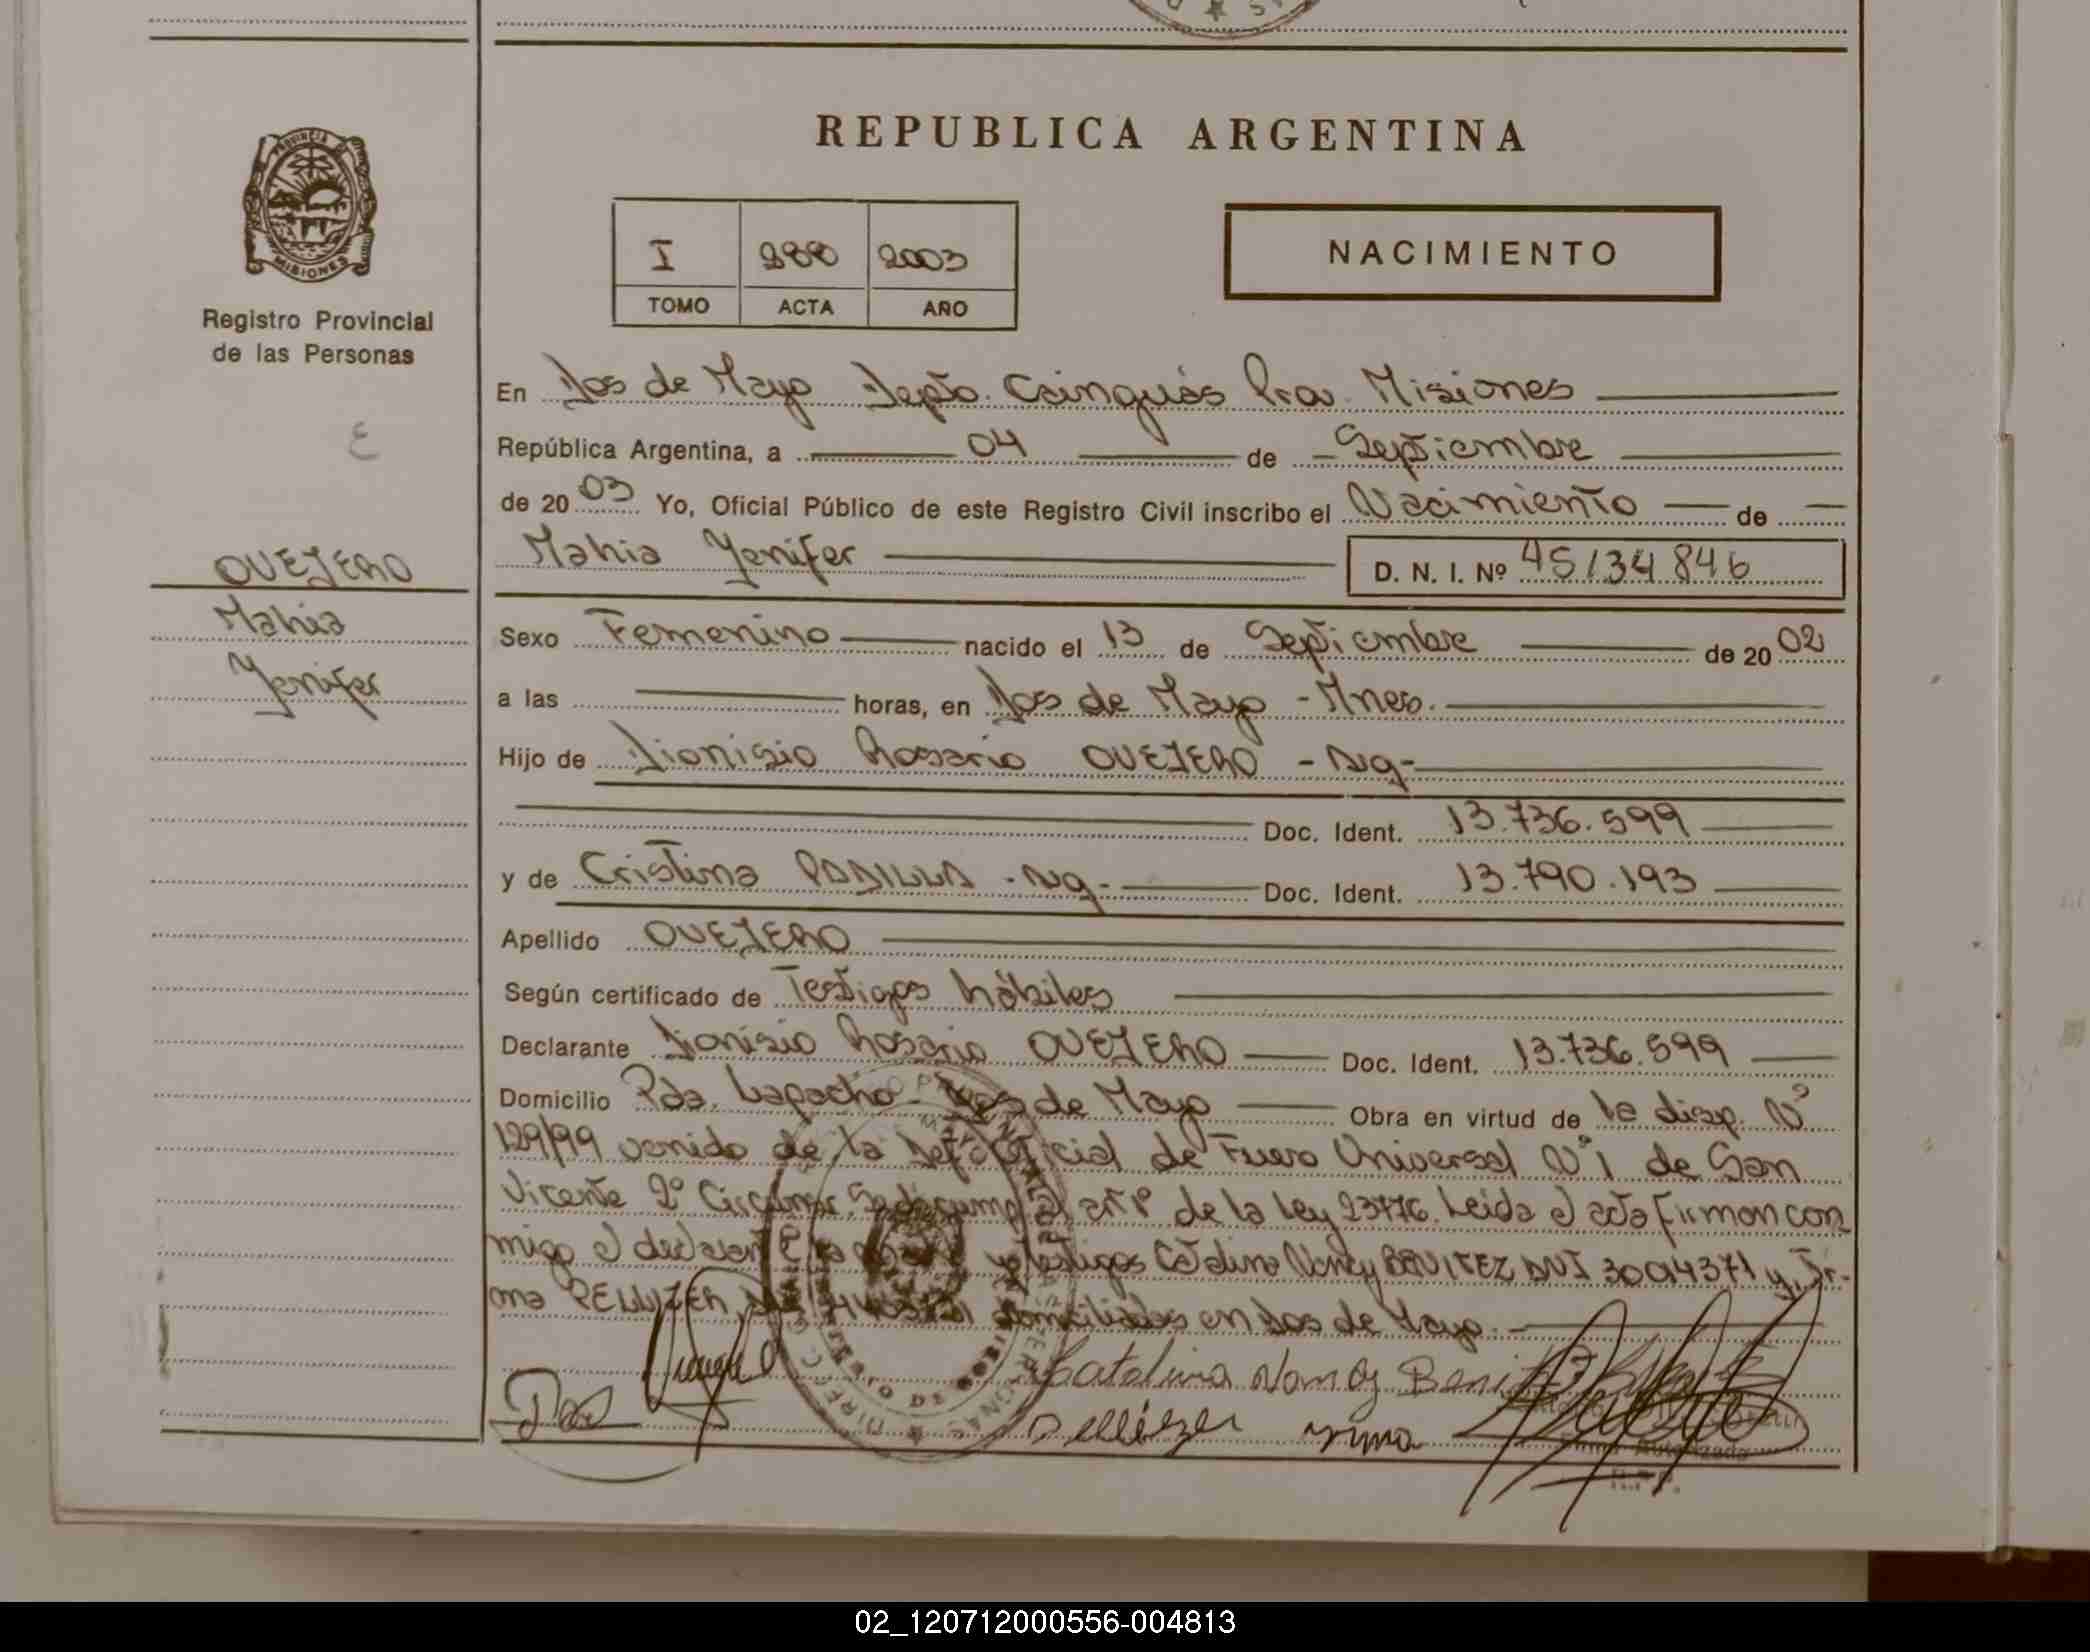 REPUBLICA ARGENTINA
PROVINCIA DE
MISIONES
Registro Provincial
de las Personas
I 288 2003
TOMO ACTA AÑO
NACIMIENTO
En Dos de Mayo Depto. Cainguás Pra. Misiones
República Argentina, a 04 de Septiembre
de 2003 Yo, Oficial Público de este Registro Civil inscribo el Nacimiento de
Mahia Yenifer D. N. I. Nº 45134846
OVEJERO
Mahia
Yenifer
Sexo Femenino nacido el 13 de Septiembre de 2002
a las horas, en Dos de Mayo - Mnes.
Hijo de Dionisio Rosario OVEJERO - Arg-
Doc. Ident. 13.736.599
y de Cristina PADILLA - Arg- Doc. Ident. 13.790.193
Apellido OVEJERO
Según certificado de Testigos hábiles
Declarante Dionisio Rosario OVEJERO Doc. Ident. 13.736.599
Domicilio Pda. Lapacho - Dos de Mayo Obra en virtud de la disp. Nº
129/99 venido de la Def. Oficial de Fuero Universal Nº 1 de San
Vicente 2º Circunsc. de la Ley 23776. Leida el acta firman con
migo el declarante y testigos Catalina Nancy BENITEZ DNI 30014371 y Ir-
ma PELLIZER domiciliados en Dos de Mayo.
Catalina Nancy Benitez
Pellizer Irma
02_120712000556-004813